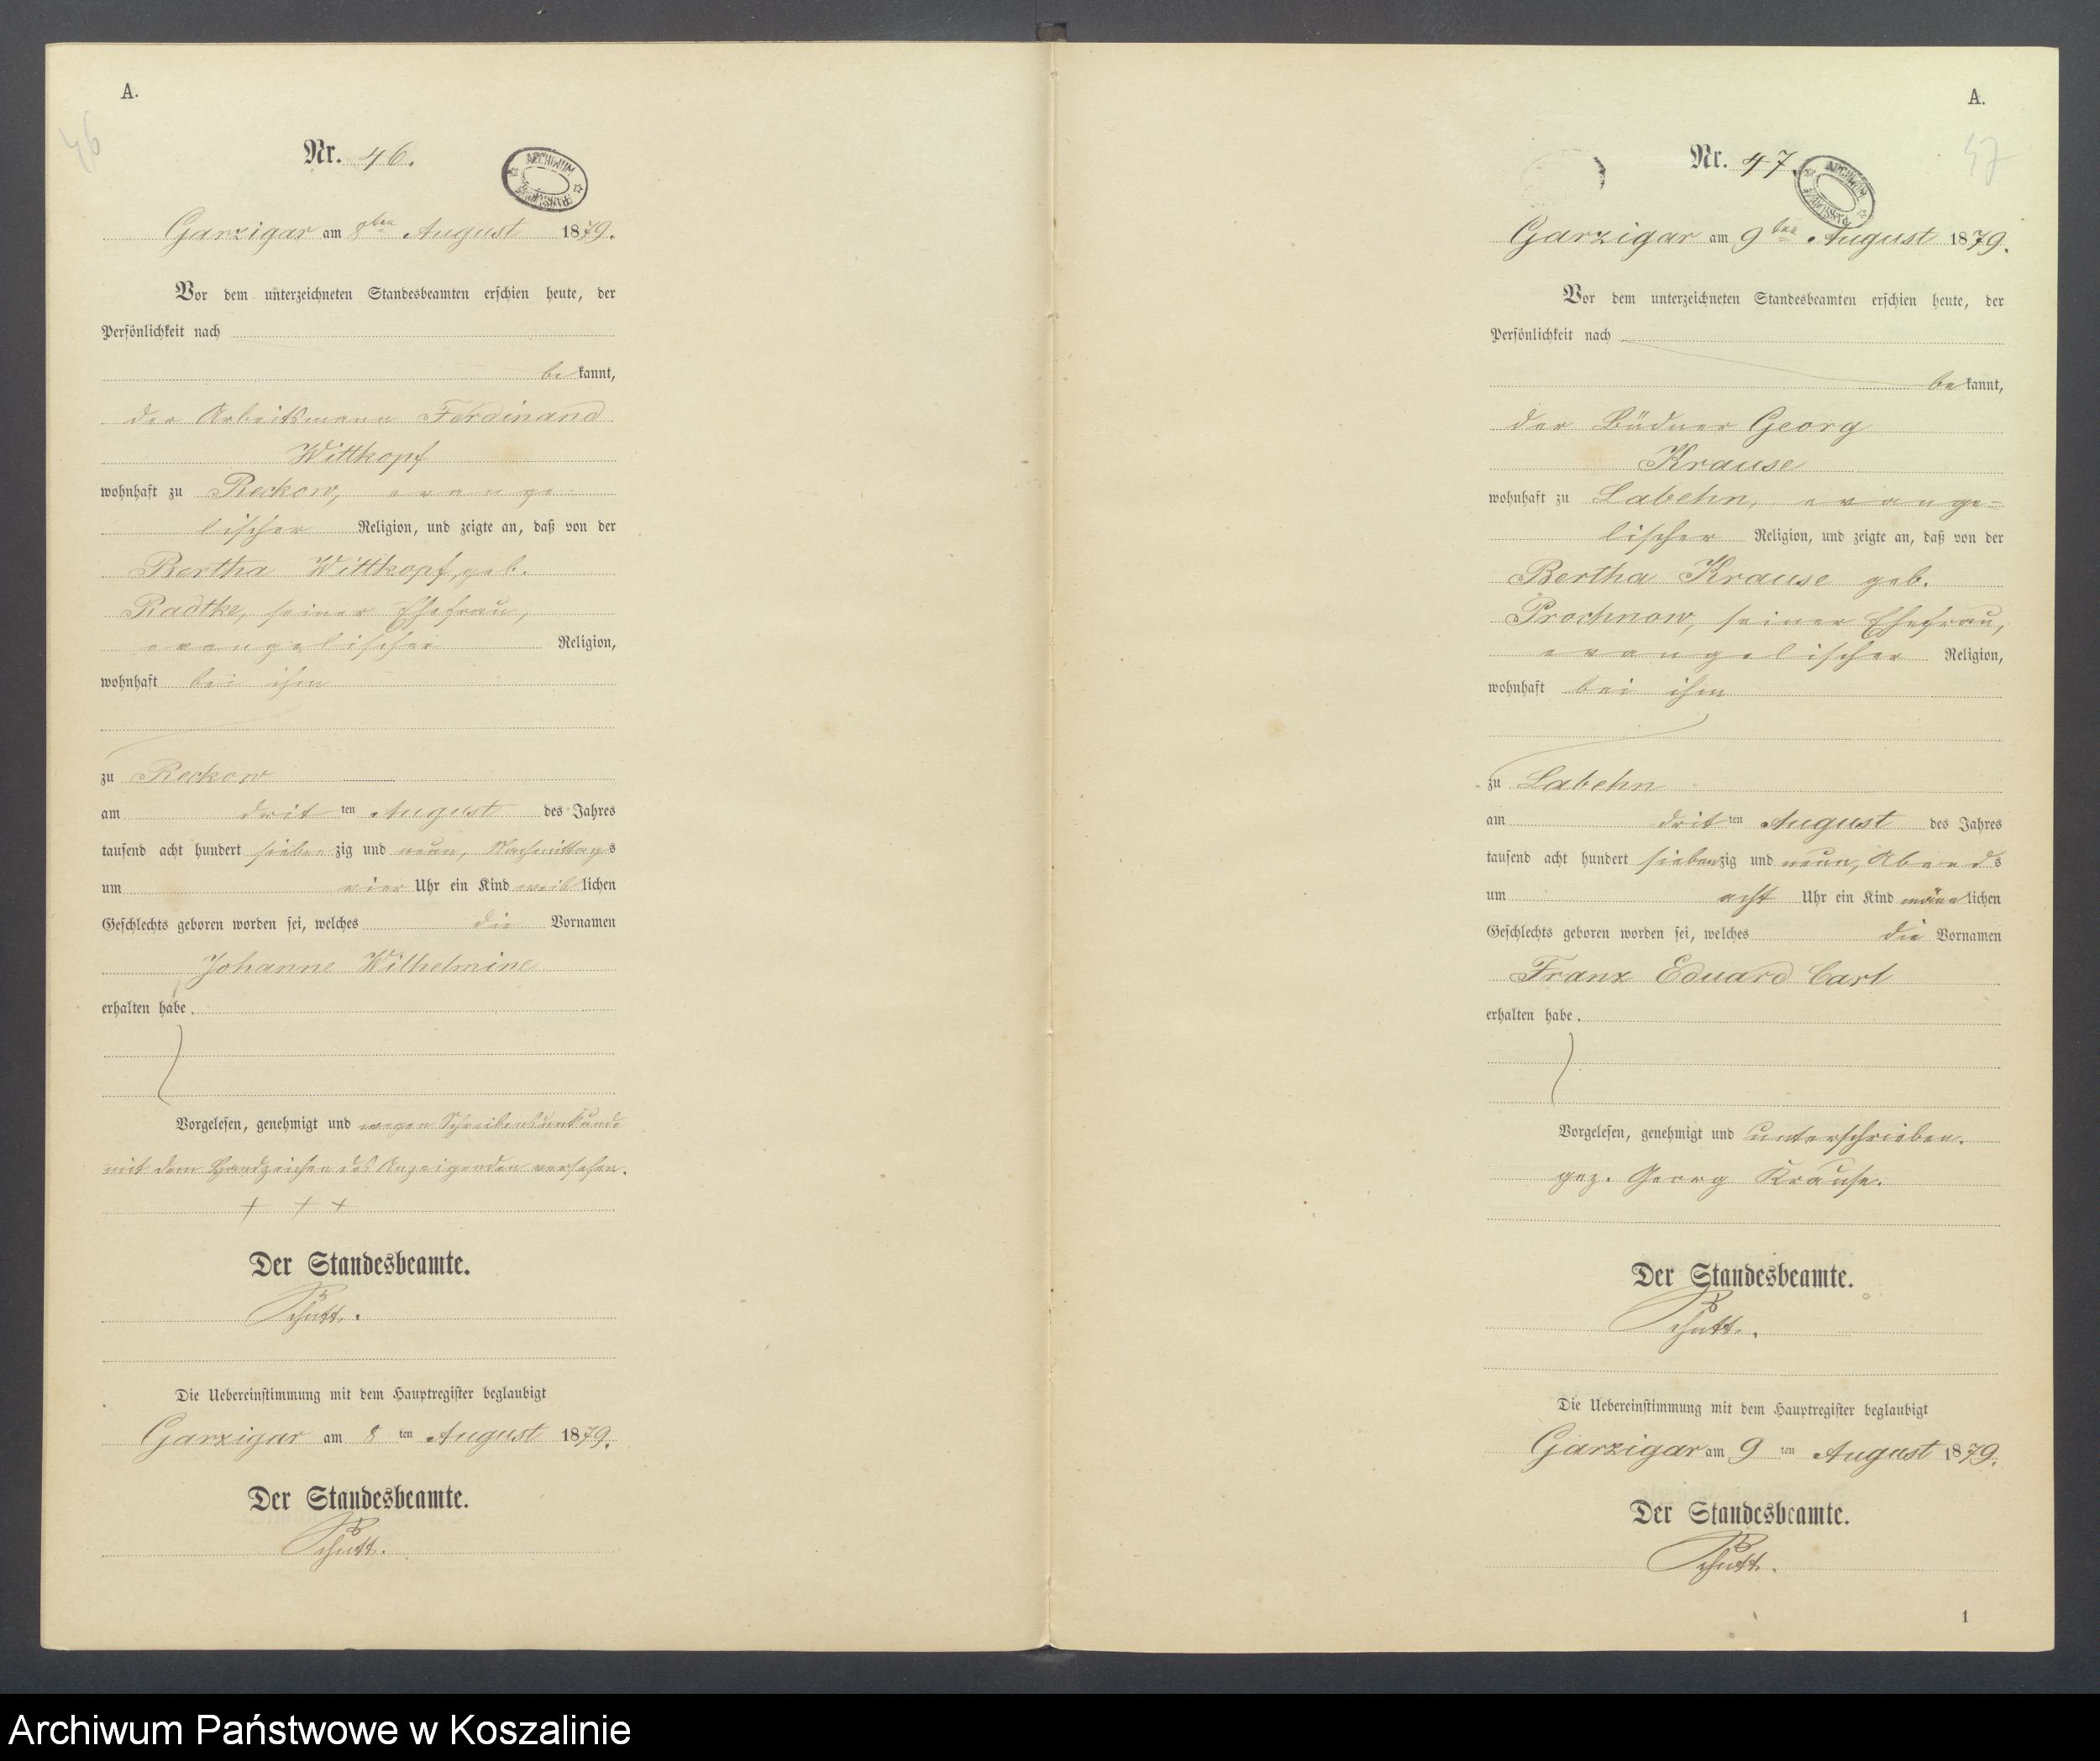 A.
46
Nr. 46.
ARCHIWUM
Garzigar am 8ten August 1879.
Vor dem unterzeichneten Standesbeamten erschien heute, der
Persönlichkeit nach
bekannt,
der Arbeitsmann Ferdinand
Wittkopf
wohnhaft zu Reckow, evange-
lischer Religion, und zeigte an, daß von der
Bertha Wittkopf, geb.
Radtke, seiner Ehefrau,
evangelischer Religion,
wohnhaft bei ihm
zu Reckow
am dritten August des Jahres
tausend acht hundert siebenzig und neun, Nachmittags
um vier Uhr ein Kind weiblichen
Geschlechts geboren worden sei, welches die Vornamen
Johanne Wilhelmine
erhalten habe.
Vorgelesen, genehmigt und wegen Schreibensunkunde
mit dem Handzeichen des Anzeigenden versehen.
+ + +
Der Standesbeamte.
Schutt.
Die Uebereinstimmung mit dem Hauptregister beglaubigt
Garzigar am 8ten August 1879.
Der Standesbeamte.
Schutt.
A.
47
Nr. 47.
ARCHIWUM
Garzigar am 9ten August 1879.
Vor dem unterzeichneten Standesbeamten erschien heute, der
Persönlichkeit nach
bekannt,
der Büdner Georg
Krause
wohnhaft zu Labehn, evange=
lischer Religion, und zeigte an, daß von der
Bertha Krause geb.
Prochnow, seiner Ehefrau,
evangelischer Religion,
wohnhaft bei ihm
zu Labehn
am dritten August des Jahres
tausend acht hundert siebenzig und neun, Abends
um acht Uhr ein Kind männlichen
Geschlechts geboren worden sei, welches die Vornamen
Franz Eduard Carl
erhalten habe.
Vorgelesen, genehmigt und unterschrieben.
gez. Georg Krause.
Der Standesbeamte.
Schutt.
Die Uebereinstimmung mit dem Hauptregister beglaubigt
Garzigar am 9ten August 1879.
Der Standesbeamte.
Schutt.
1
Archiwum Państwowe w Koszalinie